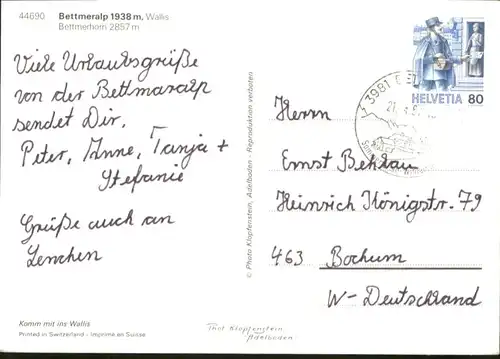 44690 Bettmeralp 1938 m, Wallis
Bettmerhorn 2857 m
Viele Urlaubsgrüße
von der Bettmaralp
sendet Dir,
Peter, Anne, Tanja +
Stefanie
Grüße auch an
Lenchen
Komm mit ins Wallis
Printed in Switzerland - Imprimé en Suisse
© Photo Klopfenstein, Adelboden - Reproduktion verboten
Phot Klopfenstein
Adelboden
HELVETIA 80
3981
Herrn
Ernst Behlau
Heinrich Königstr. 79
463 Bochum
W-Deutschland